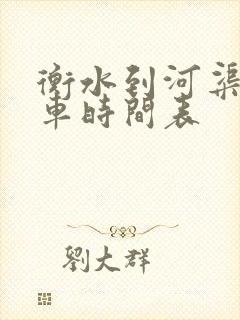 衡水到河渠
車時間表
劉大群